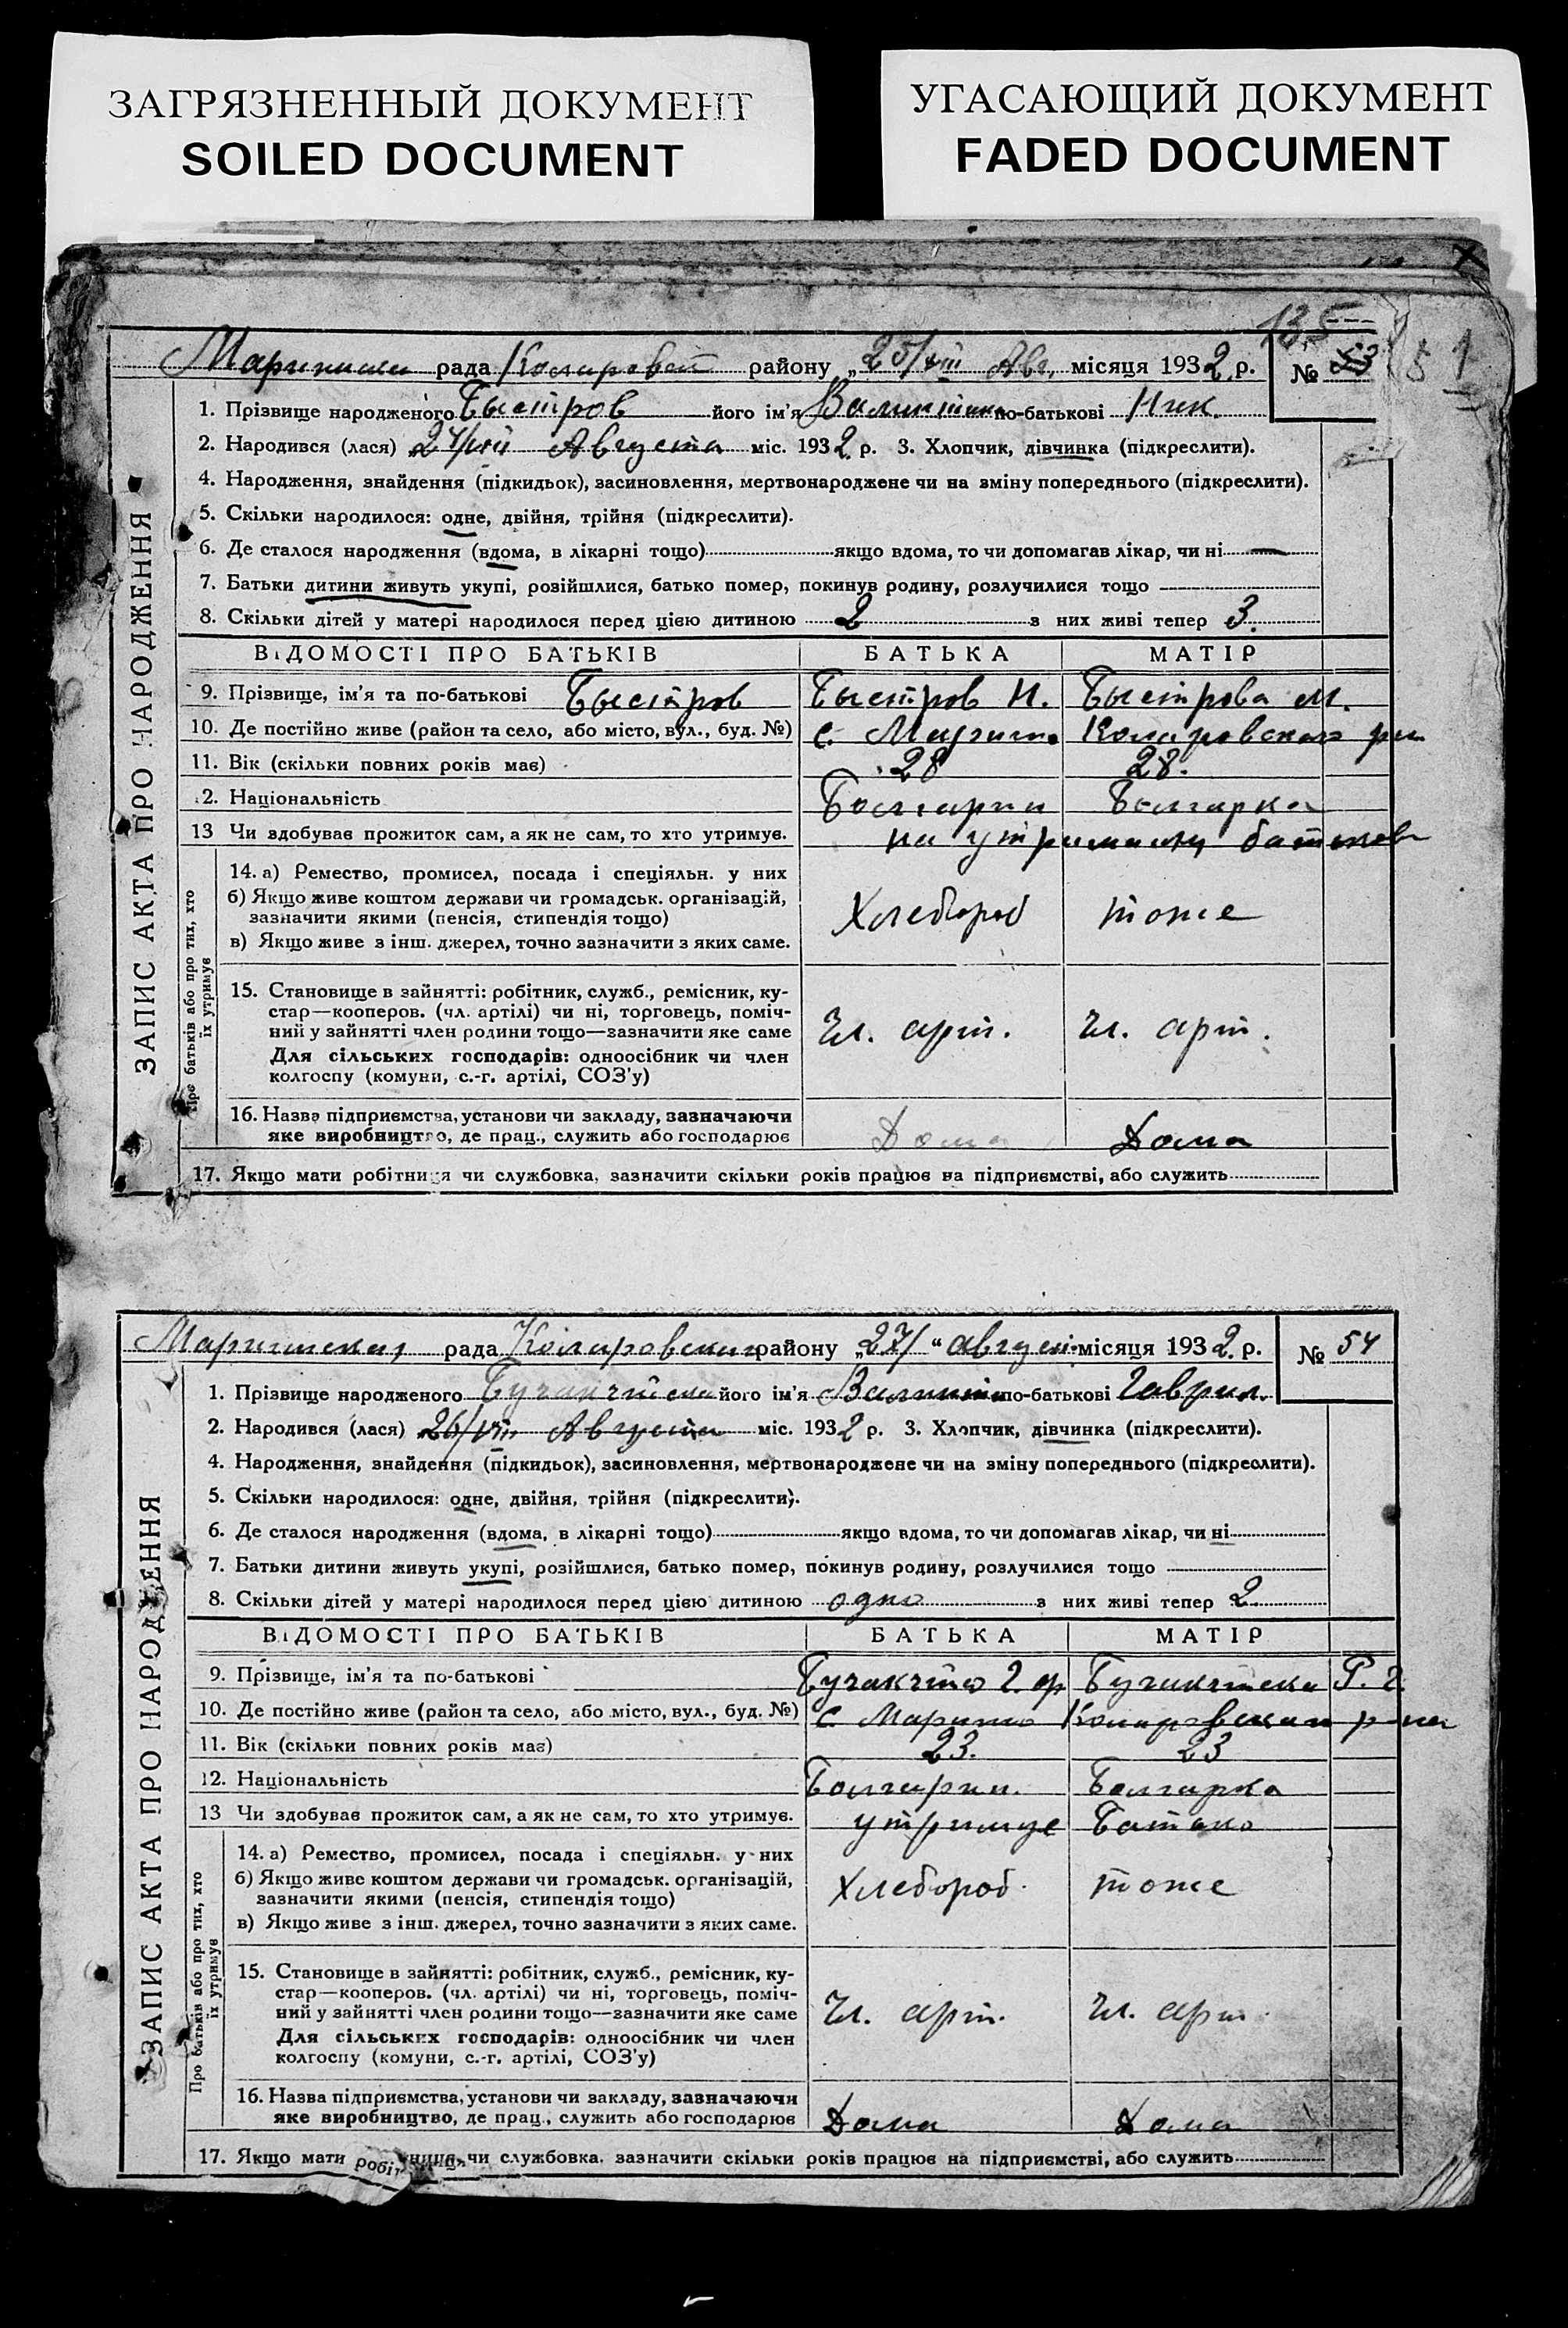 ЗАГРЯЗНЕННЫЙ ДОКУМЕНТ
SOILED DOCUMENT
УГАСАЮЩИЙ ДОКУМЕНТ
FADED DOCUMENT
135
рада району „25/VIII Авг. місяця 1932 р. № 53
1. Прізвище народженого Быстров його ім'я по-батькові Ник.
2. Народився (лася) 24/VIII Августа міс. 1932 р. 3. Хлопчик, дівчинка (підкреслити).
4. Народження, знайдення (підкидьок), засиновлення, мертвонароджене чи на зміну попереднього (підкреслити).
5. Скільки народилося: одне, двійня, трійня (підкреслити).
6. Де сталося народження (вдома, в лікарні тощо) якщо вдома, то чи допомагав лікар, чи ні —
7. Батьки дитини живуть укупі, розійшлися, батько помер, покинув родину, розлучилися тощо
8. Скільки дітей у матері народилося перед цією дитиною 2 з них живі тепер 3.
ВІДОМОСТІ ПРО БАТЬКІВ БАТЬКА МАТІР
9. Прізвище, ім'я та по-батькові Быстров Быстров Н. Быстрова М.
10. Де постійно живе (район та село, або місто, вул., буд. №) с.
11. Вік (скільки повних років має) 28 28.
12. Національність Болгарин Болгарка
13 Чи здобував прожиток сам, а як не сам, то хто утримув. на утриманні
14. а) Ремество, промисел, посада і спеціяльн. у них
б) Якщо живе коштом держави чи громадськ. організацій,
зазначити якими (пенсія, стипендія тощо) Хлебороб тоже
в) Якщо живе з інш. джерел, точно зазначити з яких саме.
15. Становище в зайнятті: робітник, служб., ремісник, ку-
стар—кооперов. (чл. артілі) чи ні, торговець, поміч-
ний у зайнятті член родини тощо—зазначити яке саме Чл. арт. Чл. арт.
Для сільських господарів: одноосібник чи член
колгоспу (комуни, с.-г. артілі, СОЗ'у)
16. Назва підприємства, установи чи закладу, зазначаючи
яке виробництво, де прац., служить або господарює Дома Дома
17. Якщо мати робітниця чи службовка, зазначити скільки років працює на підприємстві, або служить
ЗАПИС АКТА ПРО НАРОДЖЕННЯ
Про батьків або про тих, хто
їх утримує
рада району „27/ “ місяця 1932 р. № 54
1. Прізвище народженого його ім'я по-батькові Гаврил.
2. Народився (лася) 26/VIII Августа міс. 1932 р. 3. Хлопчик, дівчинка (підкреслити).
4. Народження, знайдення (підкидьок), засиновлення, мертвонароджене чи на зміну попереднього (підкреслити).
5. Скільки народилося: одне, двійня, трійня (підкреслити).
6. Де сталося народження (вдома, в лікарні тощо) якщо вдома, то чи допомагав лікар, чи ні
7. Батьки дитини живуть укупі, розійшлися, батько помер, покинув родину, розлучилися тощо
8. Скільки дітей у матері народилося перед цією дитиною одно з них живі тепер 2.
ВІДОМОСТІ ПРО БАТЬКІВ БАТЬКА МАТІР
9. Прізвище, ім'я та по-батькові
10. Де постійно живе (район та село, або місто, вул., буд. №) с.
11. Вік (скільки повних років має) 23. 23
12. Національність Болгарин. Болгарка
13 Чи здобував прожиток сам, а як не сам, то хто утримув. утримує Батько
14. а) Ремество, промисел, посада і спеціяльн. у них
б) Якщо живе коштом держави чи громадськ. організацій,
зазначити якими (пенсія, стипендія тощо) Хлебороб тоже
в) Якщо живе з інш. джерел, точно зазначити з яких саме.
15. Становище в зайнятті: робітник, служб., ремісник, ку-
стар—кооперов. (чл. артілі) чи ні, торговець, поміч-
ний у зайнятті член родини тощо—зазначити яке саме Чл. арт. Чл. арт
Для сільських господарів: одноосібник чи член
колгоспу (комуни, с.-г. артілі, СОЗ'у)
16. Назва підприємства, установи чи закладу, зазначаючи
яке виробництво, де прац., служить або господарює Дома Дома
17. Якщо мати чи службовка. зазначити скільки років працює на підприємстві, або служить
ЗАПИС АКТА ПРО НАРОДЖЕННЯ
Про батьків або про тих, хто
їх утримує